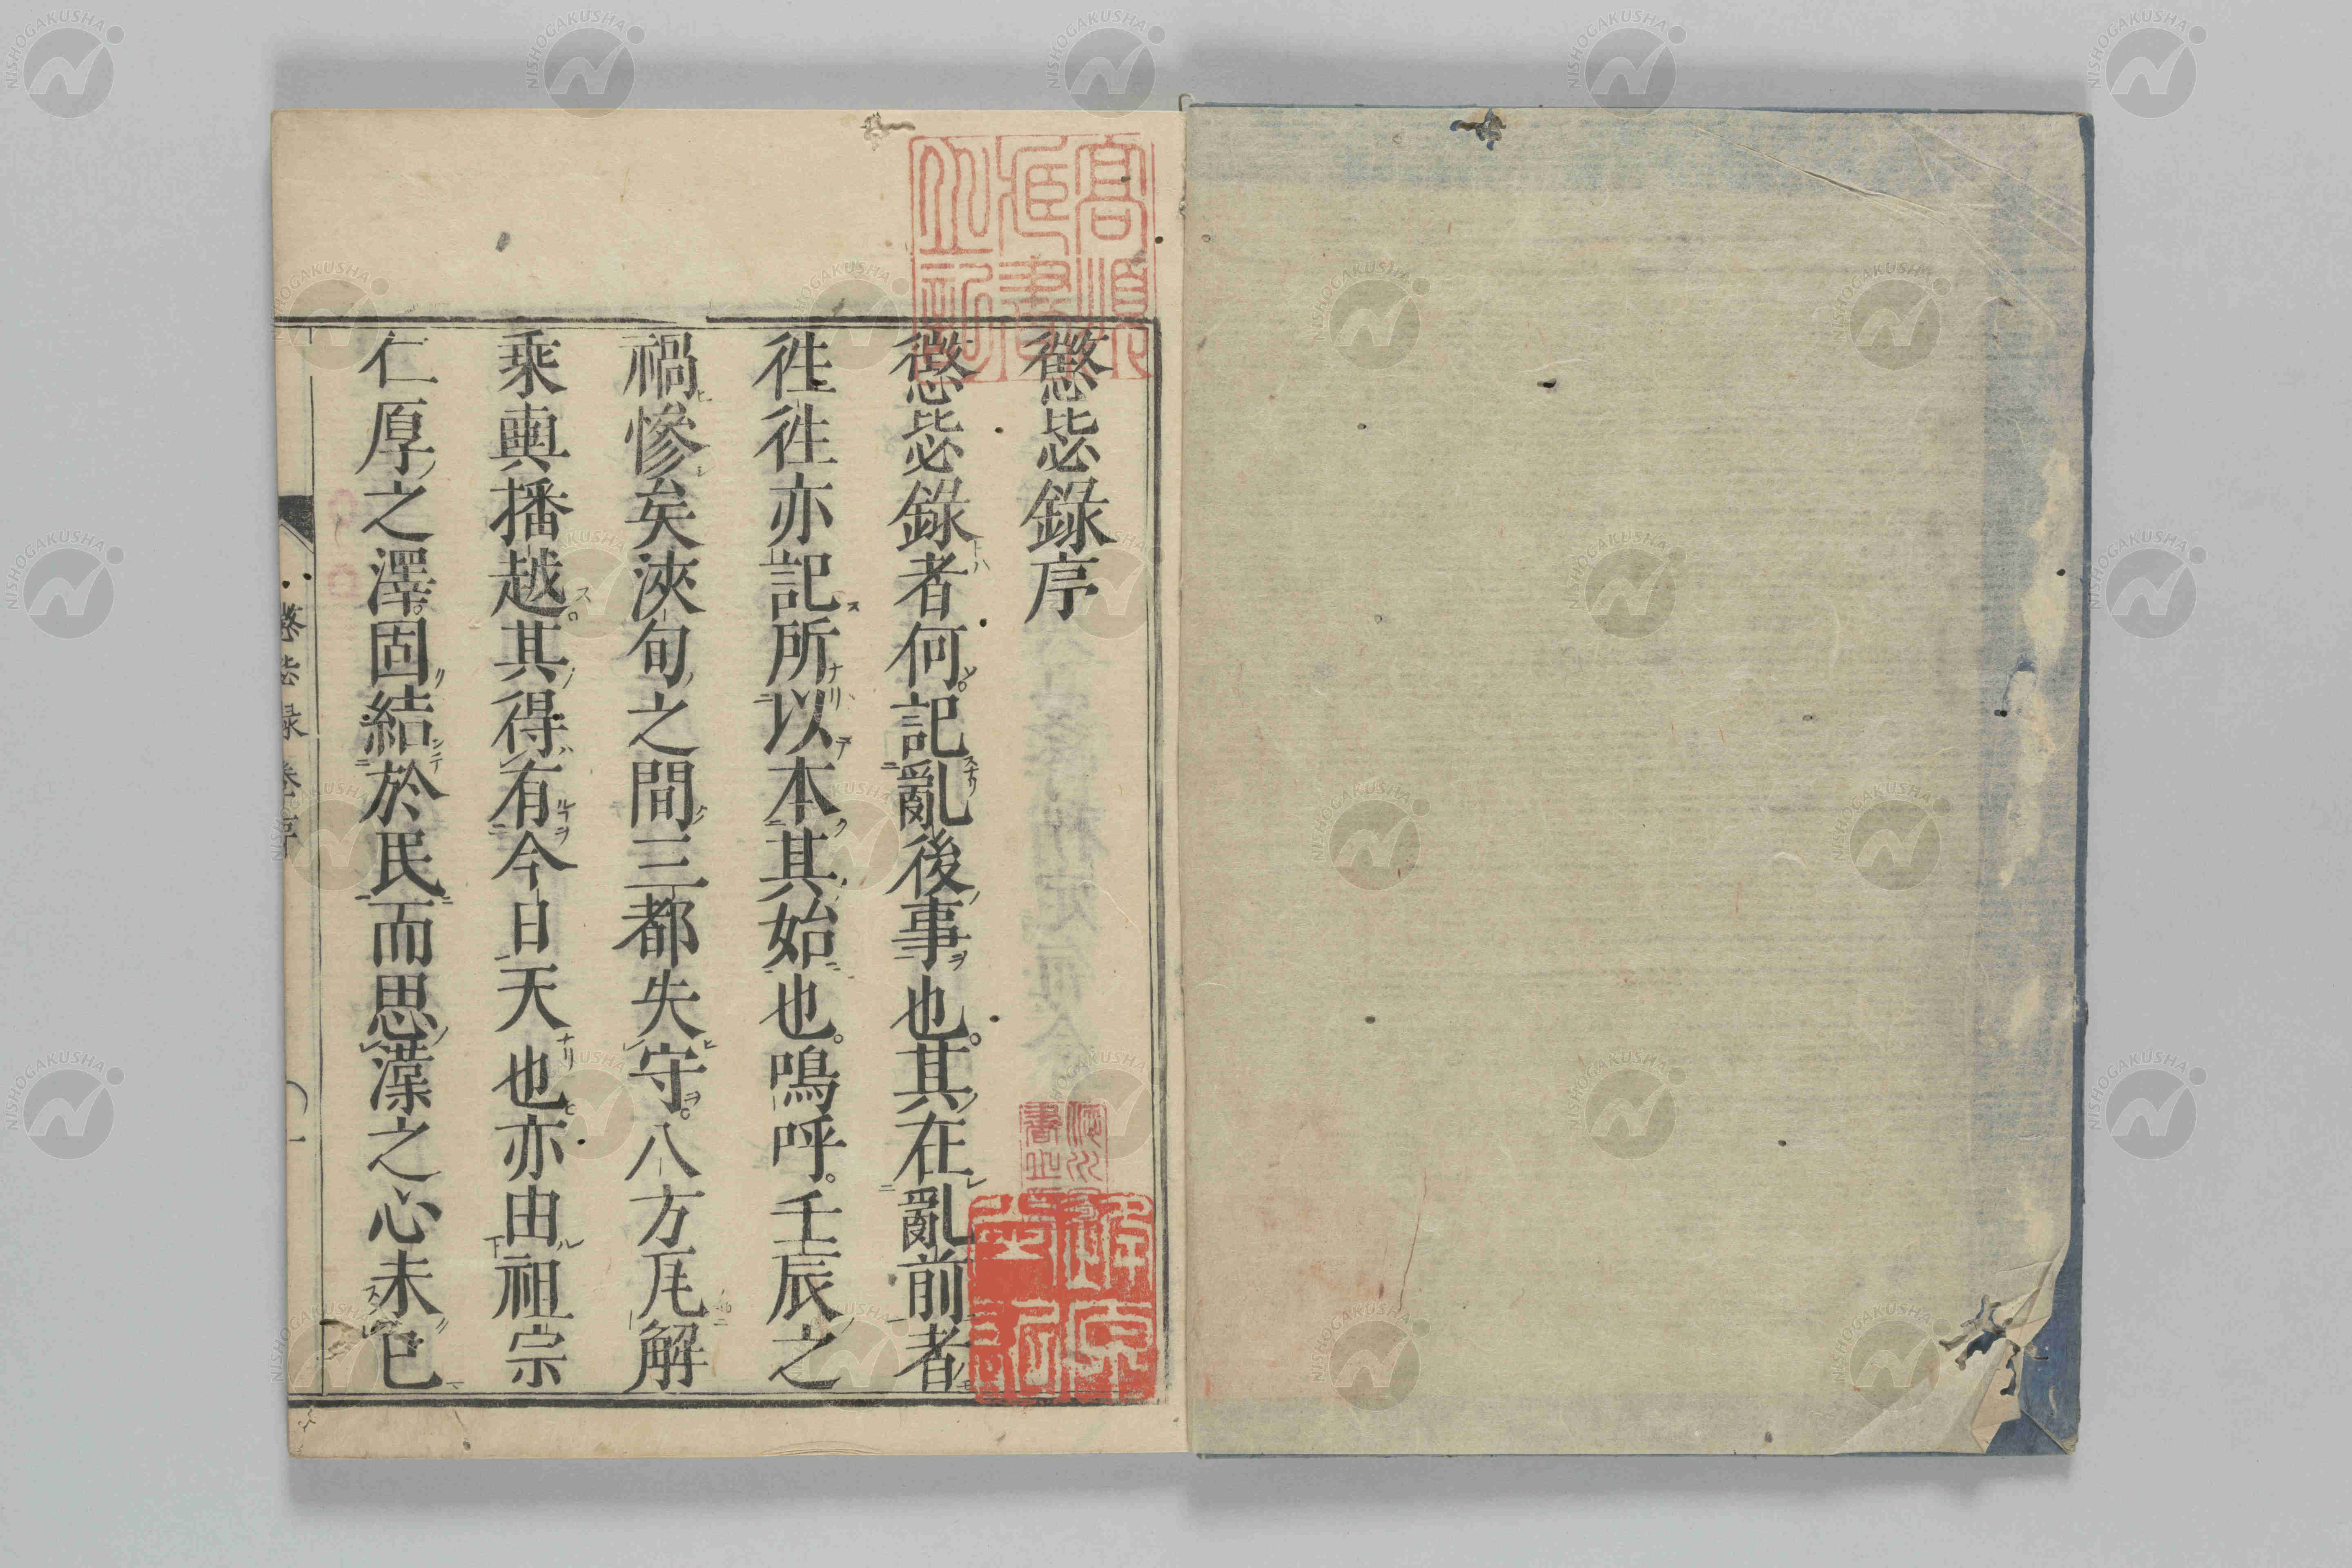 懲毖錄序
懲毖錄者何記亂後事也。其在亂前者
徃徃亦記所以本其始也。嗚呼。壬辰之
禍慘矣浹旬之間三都失守。八方瓦解
乘輿播越。其得有今日天也亦由祖宗
仁厚之澤。固結於民而思漢之心未已
懲毖錄 卷序 一
高順
臧書
之記
NISHOGAKUSHA